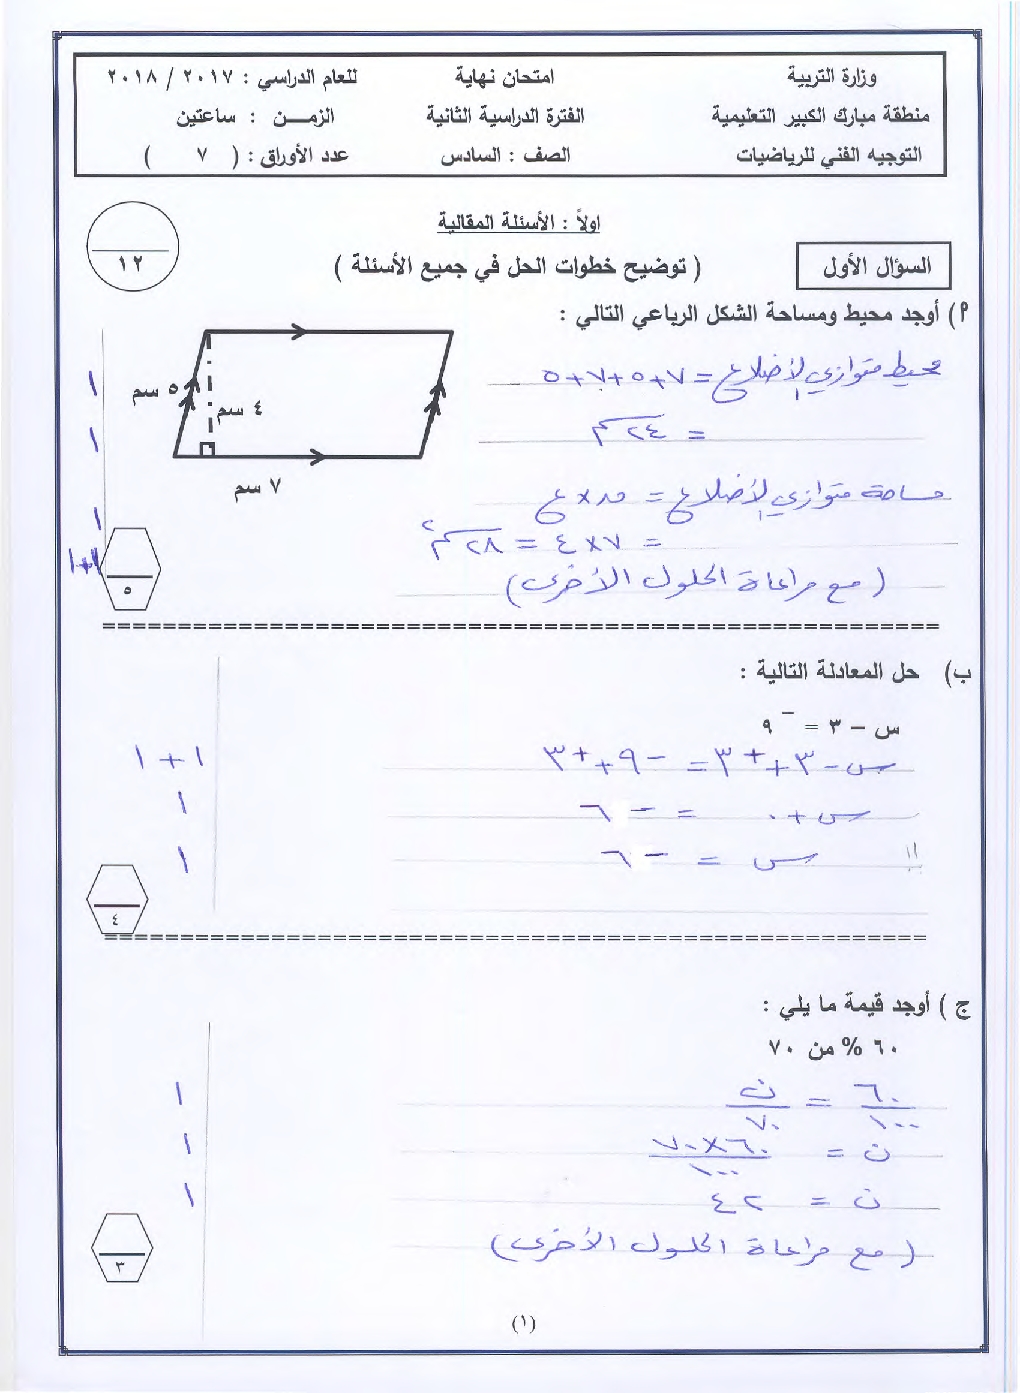 وزارة التربية
امتحان نهاية
للعام الدراسي : ٢٠١٧ / ٢٠١٨
منطقة مبارك الكبير التعليمية
الفترة الدراسية الثانية
الزمـــن : ساعتين
التوجيه الفني للرياضيات
الصف : السادس
عدد الأوراق : ( ٧ )
اولاً : الأسئلة المقالية
١٢
السؤال الأول
( توضيح خطوات الحل في جميع الأسئلة )
٩) أوجد محيط ومساحة الشكل الرباعي التالي :
٥ سم
٤ سم
٧ سم
محيط متوازي الأضلاع = ٧+٥+٧+٥
١
= ٢٤ سم
١
مساحة متوازي الأضلاع = ق × ع
١
= ٧×٤ = ٢٨ سم٢
١+١
( مع مراعاة الحلول الأخرى )
٥
ب) حل المعادلة التالية :
س – ٣ = ‾٩
س - ٣ + +٣ = -٩ + +٣
١ + ١
س + ٠ = -٦
١
س = -٦
١
٤
ج ) أوجد قيمة ما يلي :
٦٠ % من ٧٠
٦٠/١٠٠ = ن/٧٠
١
ن = ٦٠×٧٠/١٠٠
١
ن = ٤٢
١
( مع مراعاة الحلول الأخرى )
٣
(١)